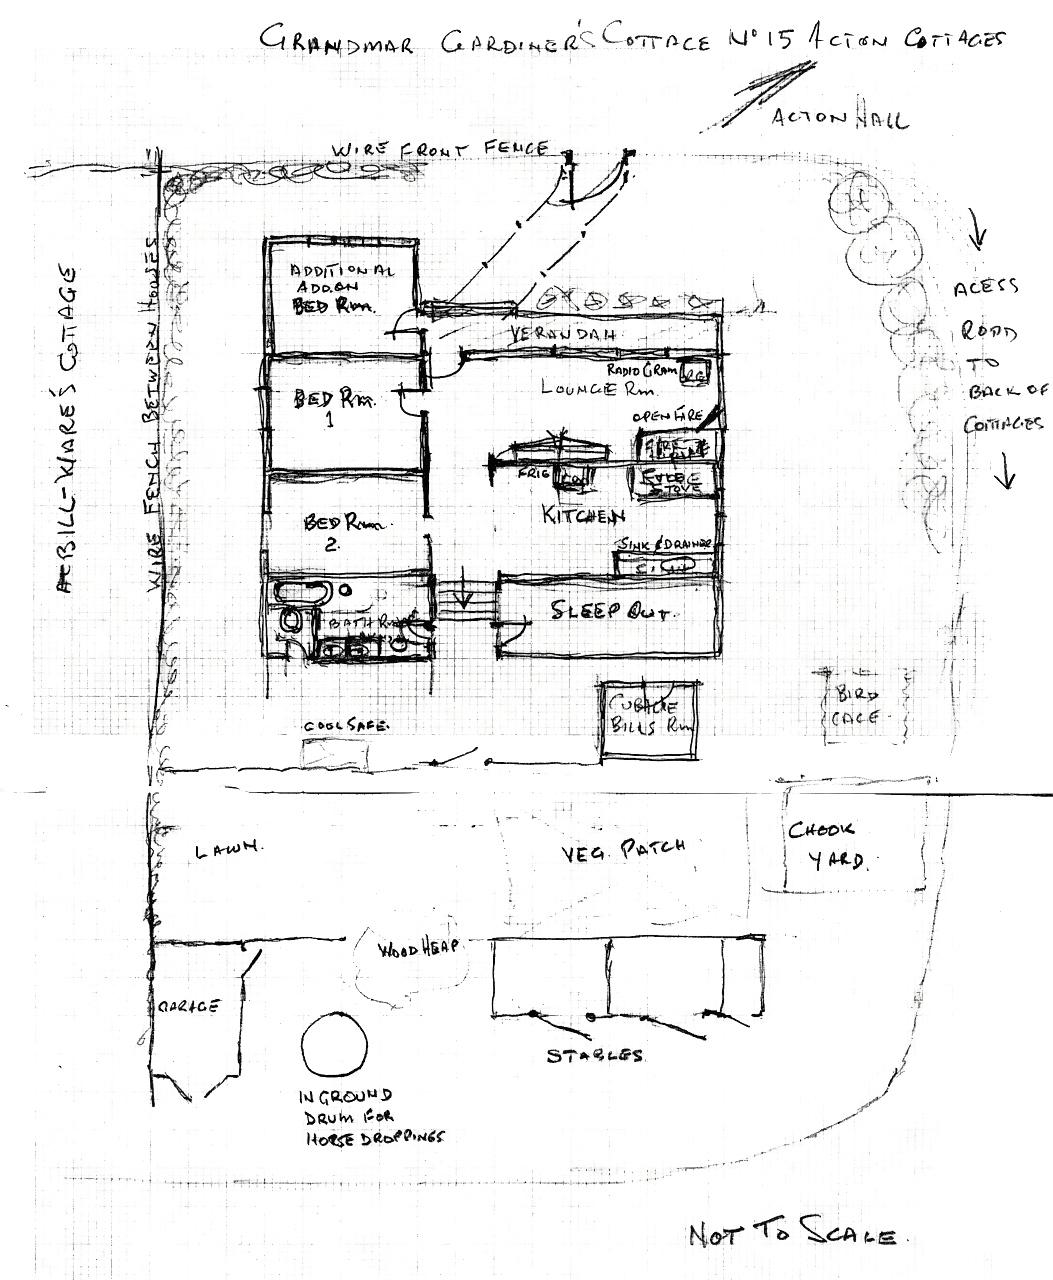 GRANDMAR GARDINER'S COTTAGE No 15 ACTON COTTAGES
ACTON HALL
WIRE FRONT FENCE
WIRE FENCE BETWEEN HOUSES
BILL-KIARE'S COTTAGE
ADDITIONAL
ADD.ON
BED Rm.
VERANDAH
RADIO GRAM
R.G
LOUNGE Rm.
BED Rm.
1
OPEN FIRE
FIRE
PLACE
FRIG
STOVE
KITCHEN
BED Rm.
2.
SINK & DRAINER
SLEEP OUT.
BATH Rm
ACESS
ROAD
TO
BACK OF
COTTAGES
BIRD
CAGE
COOL SAFE.
BILLS Rm
LAWN.
VEG. PATCH
CHOOK
YARD.
WOOD HEAP
GARAGE
STABLES
IN GROUND
DRUM FOR
HORSE DROPPINGS
NOT TO SCALE.